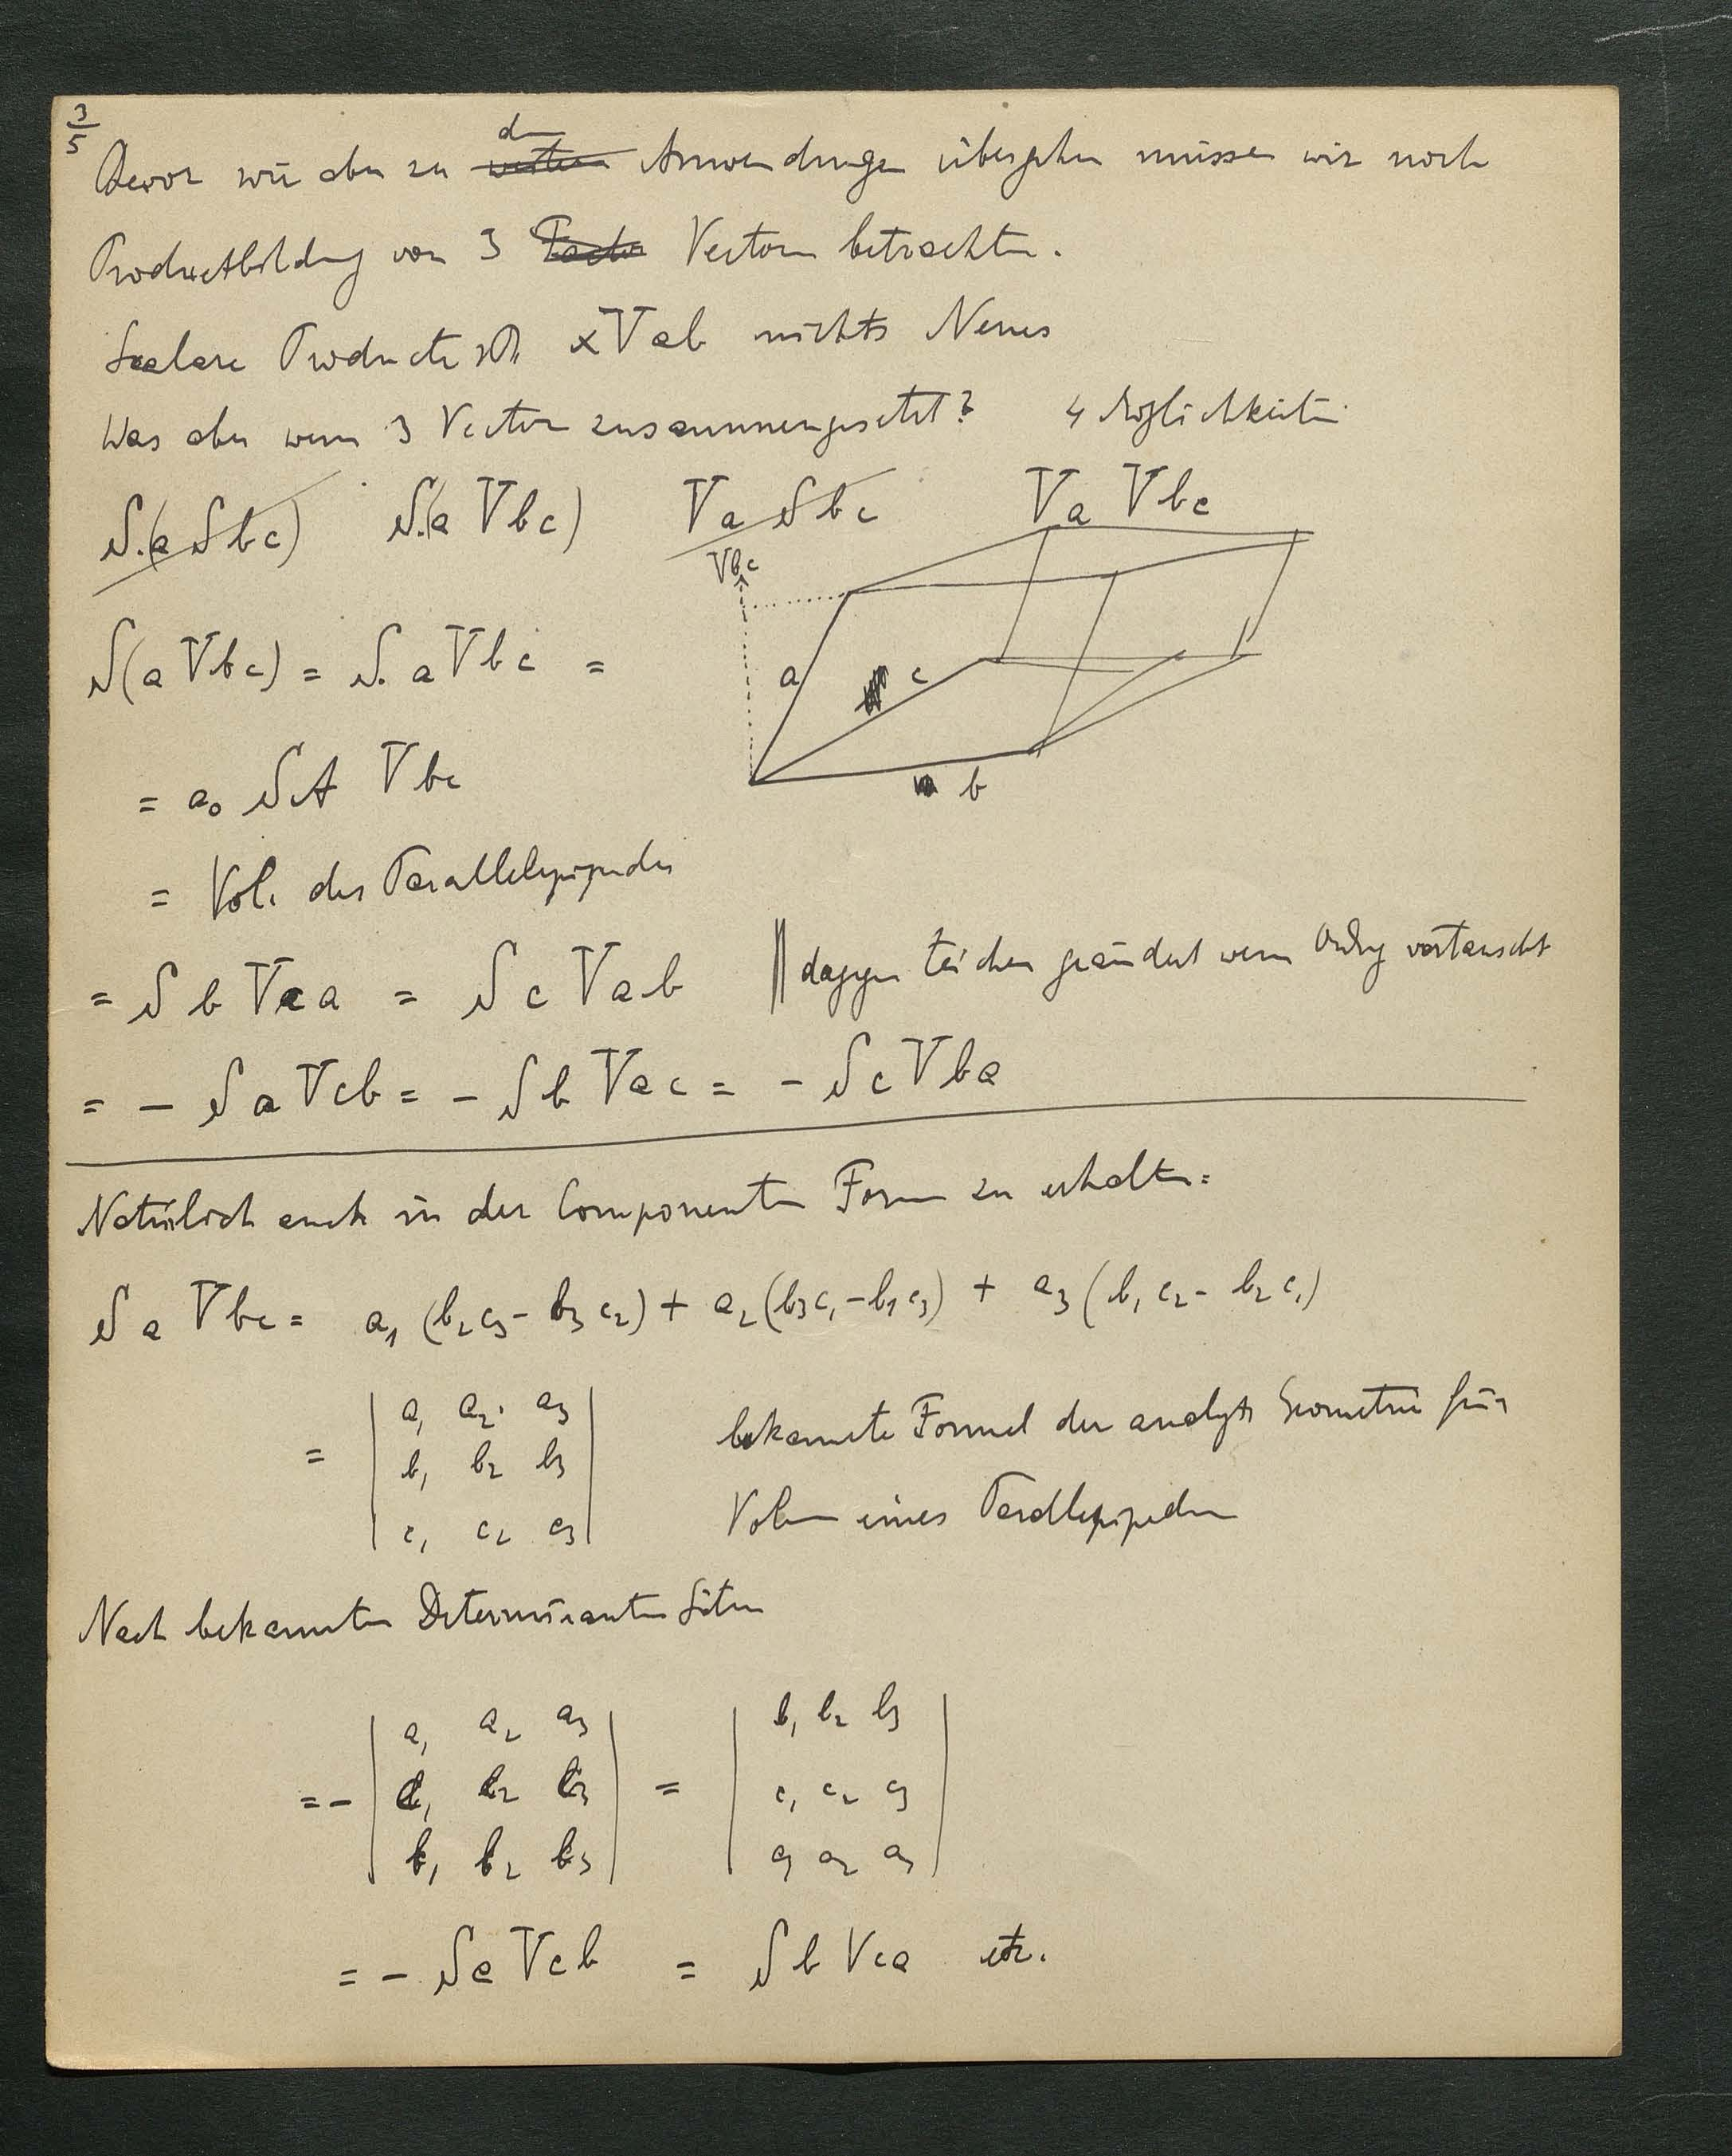 3/5
Bevor wir aber zu den Anwendungen übergehen müssen wir noch
Productbildung von 3 Vectoren betrachten.
Scalare Producte αVab nichts Neues
Was aber wenn 3 Vectoren zusammengesetzt? 4 Möglichkeiten
S.(a Sbc) S.(a Vbc) Va Sbc Va Vbc
Vbc
a c
b
S(a Vbc) = S. a Vbc =
= a₀ SA Vbc
= Vol. des Parallelepipedes
= S b Vca = S c Vab || dagegen Zeichen geändert wenn Ordng vertauscht
= - S a Vcb = - S b Vac = - S c Vba
Natürlich auch in der Componenten Form zu erhalten:
S a Vbc = a₁ (b₂c₃ - b₃c₂) + a₂ (b₃c₁ - b₁c₃) + a₃ (b₁c₂ - b₂c₁)
= | a₁ a₂ a₃ |
| b₁ b₂ b₃ |
| c₁ c₂ c₃ |
bekannte Formel der analyt Geometrie für
Volumen eines Parallepipeden
Nach bekannten Determinanten Sätzen
= - | a₁ a₂ a₃ | = | b₁ b₂ b₃ |
| c₁ c₂ c₃ | | c₁ c₂ c₃ |
| b₁ b₂ b₃ | | a₁ a₂ a₃ |
= - S a Vcb = S b Vca etc.